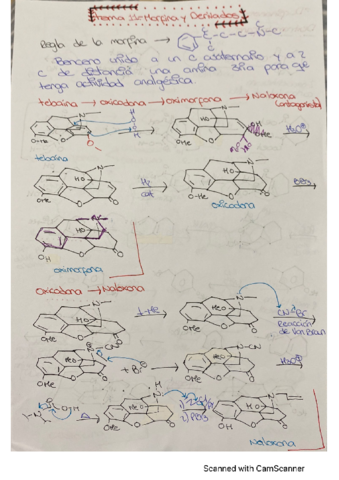 Tema 11: Morfina y Derivados
Regla de la morfina → C-C-C-N-C
Benceno unido a un C cuaternario y a 2
C de distancia una amina 3ria para que
tenga actividad analgésica
tebaína → oxicodona → oximorfona → Naloxona
(antagonista)
HO
OMe
H3O⊕
tebaína
HO
OMe
H2
cat
HO
OMe
O
BBr3
oxicodona
OH
O
oximorfona
oxicodona → Naloxona
HO
OMe
O
HO
OMe
O
CN-Br
Reacción
de Von Braun
N-CN
MeO
OMe
O
+ Br⊖
N-CN
MeO
OMe
O
H3O⊕
Δ
H
N
MeO
OMe
O
1)
2) BBr3
N
HO
OH
O
Naloxona
Scanned with CamScanner